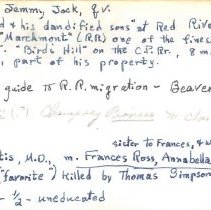 Jemmy Jock, q.v.
d & his dandified sons" at Red Rive
"Marchmont" (R.R.) one of the fines
. "Bird's Hill" on the C.P.Ry., 8 m
, part of his property.
guide to R.R. migration - Beaver
(?)
sister to Frances, & w
tis, M.D., m. Frances Ross, Annabella
("favorite") killed by Thomas Simpson
- 1/2 - uneducated